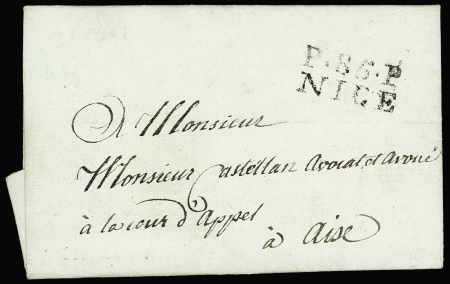 P. 86. P
NICE
A Monsieur
Monsieur Castellan Avocat et Avoué
à la cour d'Appel
à Aise